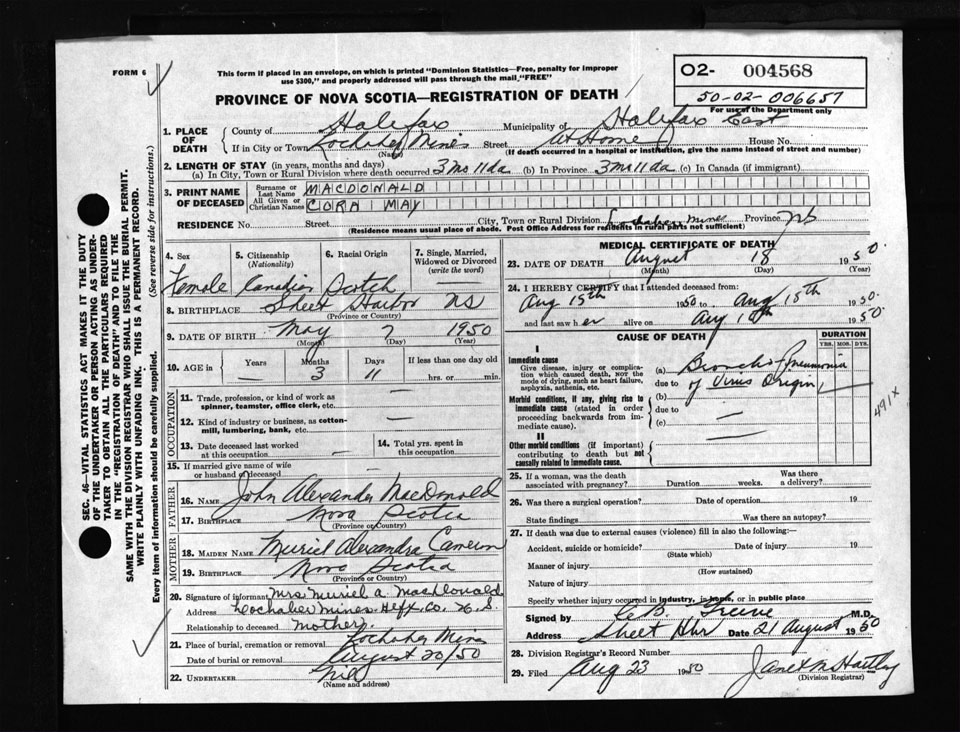 FORM 6
This form if placed in an envelope, on which is printed "Dominion Statistics—Free, penalty for improper
use $300," and properly addressed will pass through the mail "FREE"
O2- 004568
50-02-006657
For use of the Department only
PROVINCE OF NOVA SCOTIA—REGISTRATION OF DEATH
1. PLACE OF DEATH
County of Halifax Municipality of Halifax East
If in City or Town Lochaber Mines Street At Home House No.
(Name) (If death occurred in a hospital or institution, give the name instead of street and number)
2. LENGTH OF STAY (in years, months and days)
(a) In City, Town or Rural Division where death occurred 3 mo 11 da (b) In Province 3 mo 11 da (c) In Canada (if immigrant)
3. PRINT NAME OF DECEASED
Surname or Last Name MACDONALD
All Given or Christian Names CORA MAY
RESIDENCE No. Street City, Town or Rural Division Lochaber Mines Province NS
(Residence means usual place of abode. Post Office Address for residents in rural parts not sufficient)
4. Sex 5. Citizenship (Nationality) 6. Racial Origin 7. Single, Married, Widowed or Divorced (write the word)
Female Canadian Scotch —
8. BIRTHPLACE Sheet Harbor NS
(Province or Country)
9. DATE OF BIRTH May 7 1950
(Month) (Day) (Year)
10. AGE in Years Months Days If less than one day old
— 3 11 hrs. or min.
OCCUPATION
11. Trade, profession, or kind of work as spinner, teamster, office clerk, etc. —
12. Kind of industry or business, as cotton-mill, lumbering, bank, etc. —
13. Date deceased last worked at this occupation — 14. Total yrs. spent in this occupation
15. If married give name of wife or husband of deceased —
FATHER
16. NAME John Alexander MacDonald
17. BIRTHPLACE Nova Scotia
(Province or Country)
MOTHER
18. MAIDEN NAME Muriel Alexandra Cameron
19. BIRTHPLACE Nova Scotia
(Province or Country)
20. Signature of informant Mrs Muriel A. MacDonald
Address Lochaber Mines Hlfx Co. N.S.
Relationship to deceased Mother
21. Place of burial, cremation or removal Lochaber Mines
Date of burial or removal August 20/50
22. UNDERTAKER Nil
(Name and address)
MEDICAL CERTIFICATE OF DEATH
23. DATE OF DEATH August 18 1950
(Month) (Day) (Year)
24. I HEREBY CERTIFY that I attended deceased from:
Aug 15th 1950 to Aug 18th 1950
and last saw her alive on Aug 1950
CAUSE OF DEATH DURATION
YRS. MOS. DYS.
I
Immediate cause
Give disease, injury or complication which caused death, NOT the mode of dying, such as heart failure, asphyxia, asthenia, etc.
(a) Broncho-pneumonia
due to of Virus Origin
Morbid conditions, if any, giving rise to immediate cause (stated in order proceeding backwards from immediate cause).
(b)
due to —
(c)
II
Other morbid conditions (if important) contributing to death but not causally related to immediate cause.
491X
25. If a woman, was the death associated with pregnancy? Duration weeks. Was there a delivery?
26. Was there a surgical operation? Date of operation 19
State findings Was there an autopsy?
27. If death was due to external causes (violence) fill in also the following:
Accident, suicide or homicide? Date of injury 19
(State which)
Manner of injury
(How sustained)
Nature of injury
Specify whether injury occurred in industry, in home, or in public place
Signed by C B. Greene M.D.
Address Sheet Hbr Date 21 August 1950
28. Division Registrar's Record Number
29. Filed Aug 23 1950 Janet M Hartley
(Division Registrar)
SEC. 46—VITAL STATISTICS ACT MAKES IT THE DUTY
OF THE UNDERTAKER OR PERSON ACTING AS UNDER-
TAKER TO OBTAIN ALL THE PARTICULARS REQUIRED
IN THE "REGISTRATION OF DEATH" AND TO FILE THE
SAME WITH THE DIVISION REGISTRAR WHO SHALL ISSUE THE BURIAL PERMIT.
WRITE PLAINLY WITH UNFADING INK. THIS IS A PERMANENT RECORD.
Every item of information should be carefully supplied. (See reverse side for instructions.)